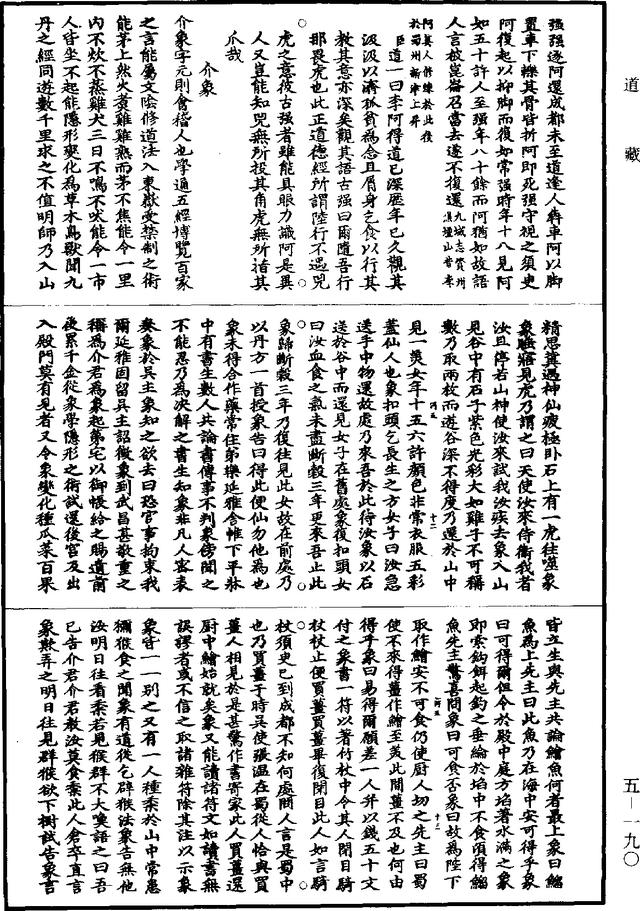 道藏
強強遂阿還成都未至道逢人犇車阿以脚
置車下轢其骨皆折阿即死強守視之須臾
阿復起以抑脚而復如常強時年十八見阿
如五十許人至強年八十餘而阿猶如故語
人言故崑崙召當去遂不復還九域志資州
真壇山昔李
阿真人修煉於此後
於蜀州新津上昇
臣道一曰李阿得道已深歷年已久觀其
汲汲以濟孤貧為念且屑身乞食以行其
教其意亦深矣觀其語古強曰爾隨吾行
那畏虎也此正道德經所謂陸行不遇兕
虎之意彼古強者雖能具眼力識阿是異
人又豈能知兕無所投其角虎無所措其
爪哉
介象
介象字元則會稽人也學通五經博覽百家
之言能屬文陰修道法入東嶽受禁制之術
能茅上然火煑雞雞熟而茅不焦能令一里
內不炊不蒸雞犬三日不鳴不吠能令一市
人皆坐不起能隱形變化為草木鳥獸聞九
丹之經同遊數千里求之不值明師乃入山
精思冀遇神仙疲極卧石上有一虎往噬象
象臨寤見虎乃謂之曰天使汝來侍衛我者
汝且停若山神使汝來試我汝疾去象入山
見谷中有石子紫色光彩大如雞子不可稱
數乃取兩枚而遊谷深不得度乃還於山中
見一美女年十五六許顏色非常衣服五彩
蓋仙人也象扣頭乞長生之方女子曰汝急
送手中物還故處乃來吾於此待汝象以石
送於谷中而還見女子在舊處象復扣頭女
曰汝血食之氣未盡斷穀三年更來吾止此
象歸斷穀三年乃復往見此女故在前處乃
以丹方一首授象告曰得此便仙勿他為也
象未得合作藥常住弟樂延雅舍帷下平牀
中有書生數人共論書傳事不判象傍聞之
不能忍乃為決解之書生知象非凡人密表
奏象於吳主象知之欲去曰恐官事拘束我
爾延雅固留吳主詔徵象到武昌甚敬重之
稱為介君為象起第宅以御帳給之賜遺前
後累千金從象學隱形之術試還後宮及出
入殿門莫有見者又令象變化種瓜菜百果
皆立生與先主共論鱠魚何者最上象曰鯔
魚為上先主曰此魚乃在海中安可得乎象
曰可得爾但令於殿中庭方埳著水滿之象
即索鈎餌起釣之垂綸於埳中不食頃得鯔
魚先主驚喜問象曰可食否象曰故為陛下
取作鱠安不可食仍使厨人切之先主曰蜀
使不來得薑作鱠至美此間薑不及也何由
得乎象曰易得爾願差一人并以錢五十文
付之象書一符以著竹杖中令其人閉目騎
杖杖止便買薑買薑畢復閉目此人如言騎
杖須臾已到成都不知何處問人言是蜀中
也乃買薑于時吳使張溫在蜀從人恰與買
薑人相見於是甚驚作書寄家此人買薑還
厨中鱠始就矣象又能讀諸符文如讀書無
誤謬者或不信之取諸雜符除其注以示象
象皆一一別之又有一人種黍於山中常患
獼猴食之聞象有道從乞辟猴法象告無他
汝明日往看黍若見猴群下大嘆語之曰吾
已告介君介君教汝莫食黍此人倉卒直言
象欺弄之明日往見群猴欲下樹試告象言
五—一九〇